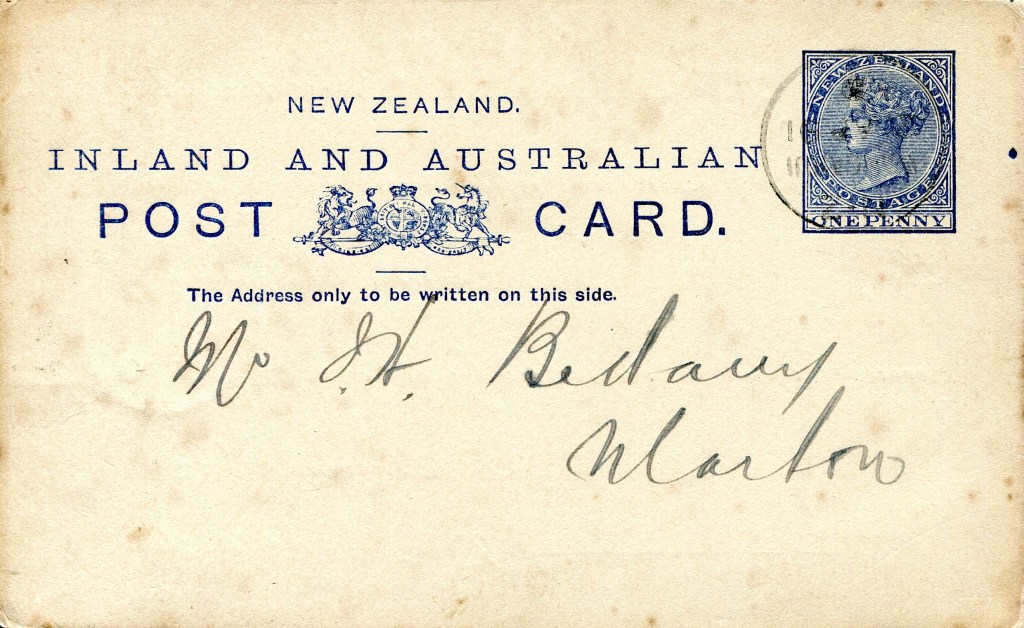 NEW ZEALAND.
INLAND AND AUSTRALIAN
POST CARD.
The Address only to be written on this side.
NEW ZEALAND
POSTAGE
ONE PENNY
Mr H. Bellamy
Marton